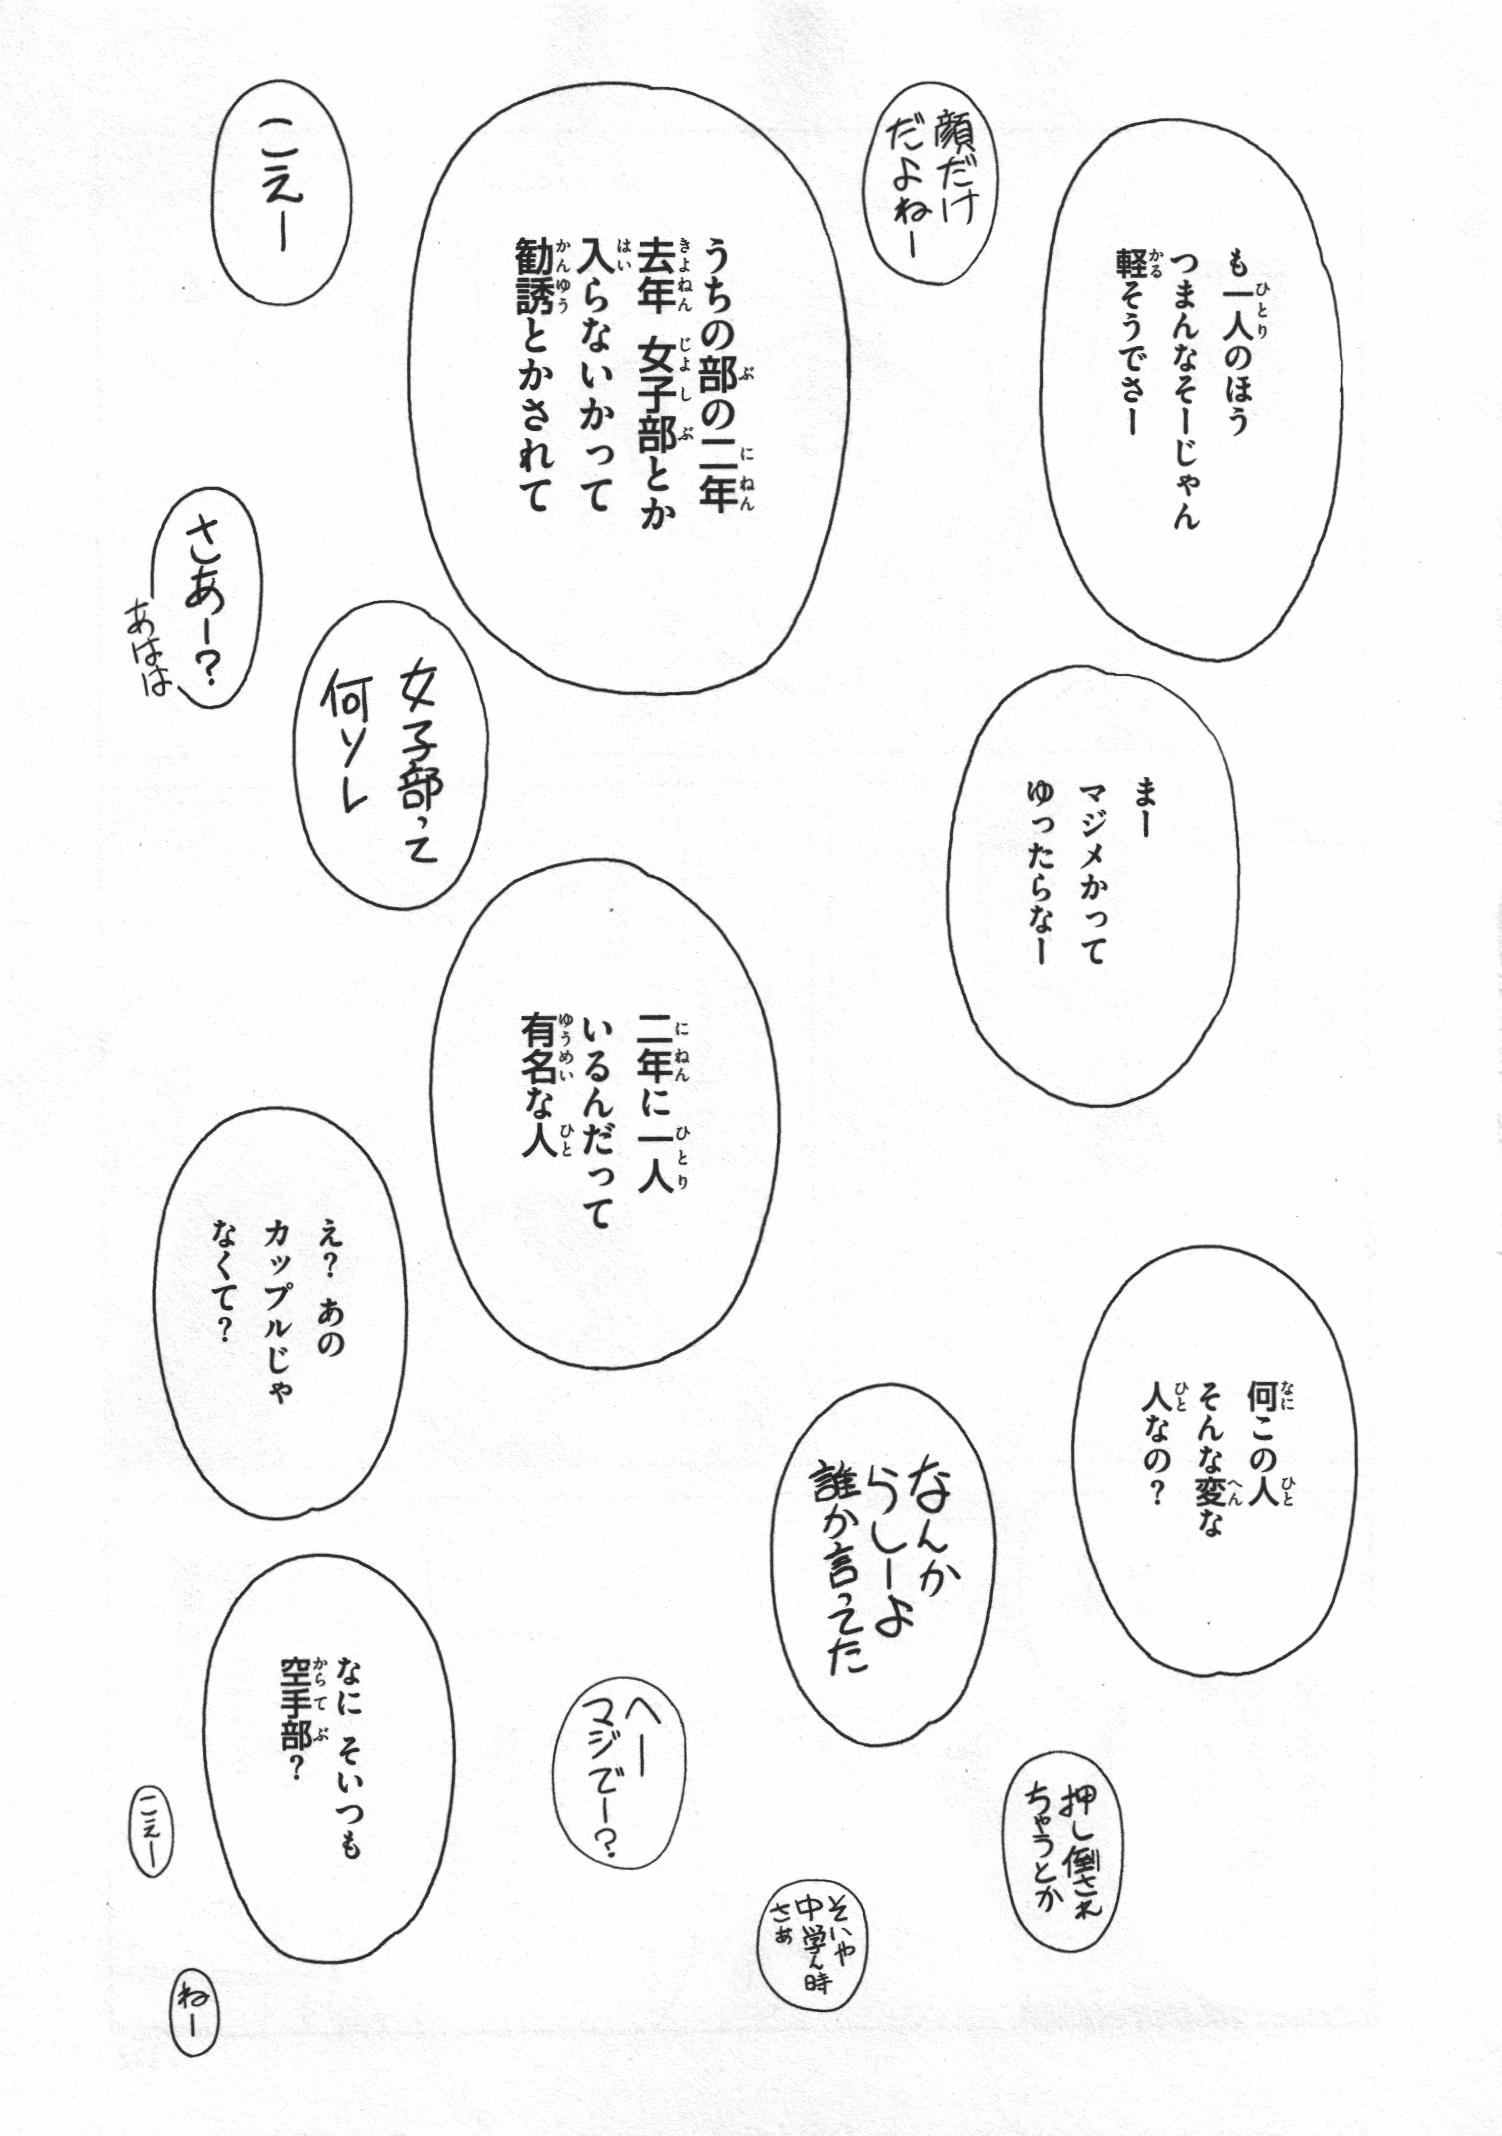 も一人のほう
つまんなそーじゃん
軽そうでさー
顔だけ
だよねー
まー
マジメかって
ゆったらなー
うちの部の二年
去年 女子部とか
入らないかって
勧誘とかされて
こえー
さあー?
あはは
女子部って
何ソレ
二年に一人
いるんだって
有名な人
え? あの
カップルじゃ
なくて?
何この人
そんな変な
人なの?
なんか
らしーよ
誰か言ってた
押し倒され
ちゃうとか
へー
マジでー?
そいや
中学ん時
さぁ
なに そいつも
空手部?
こえー
ねー